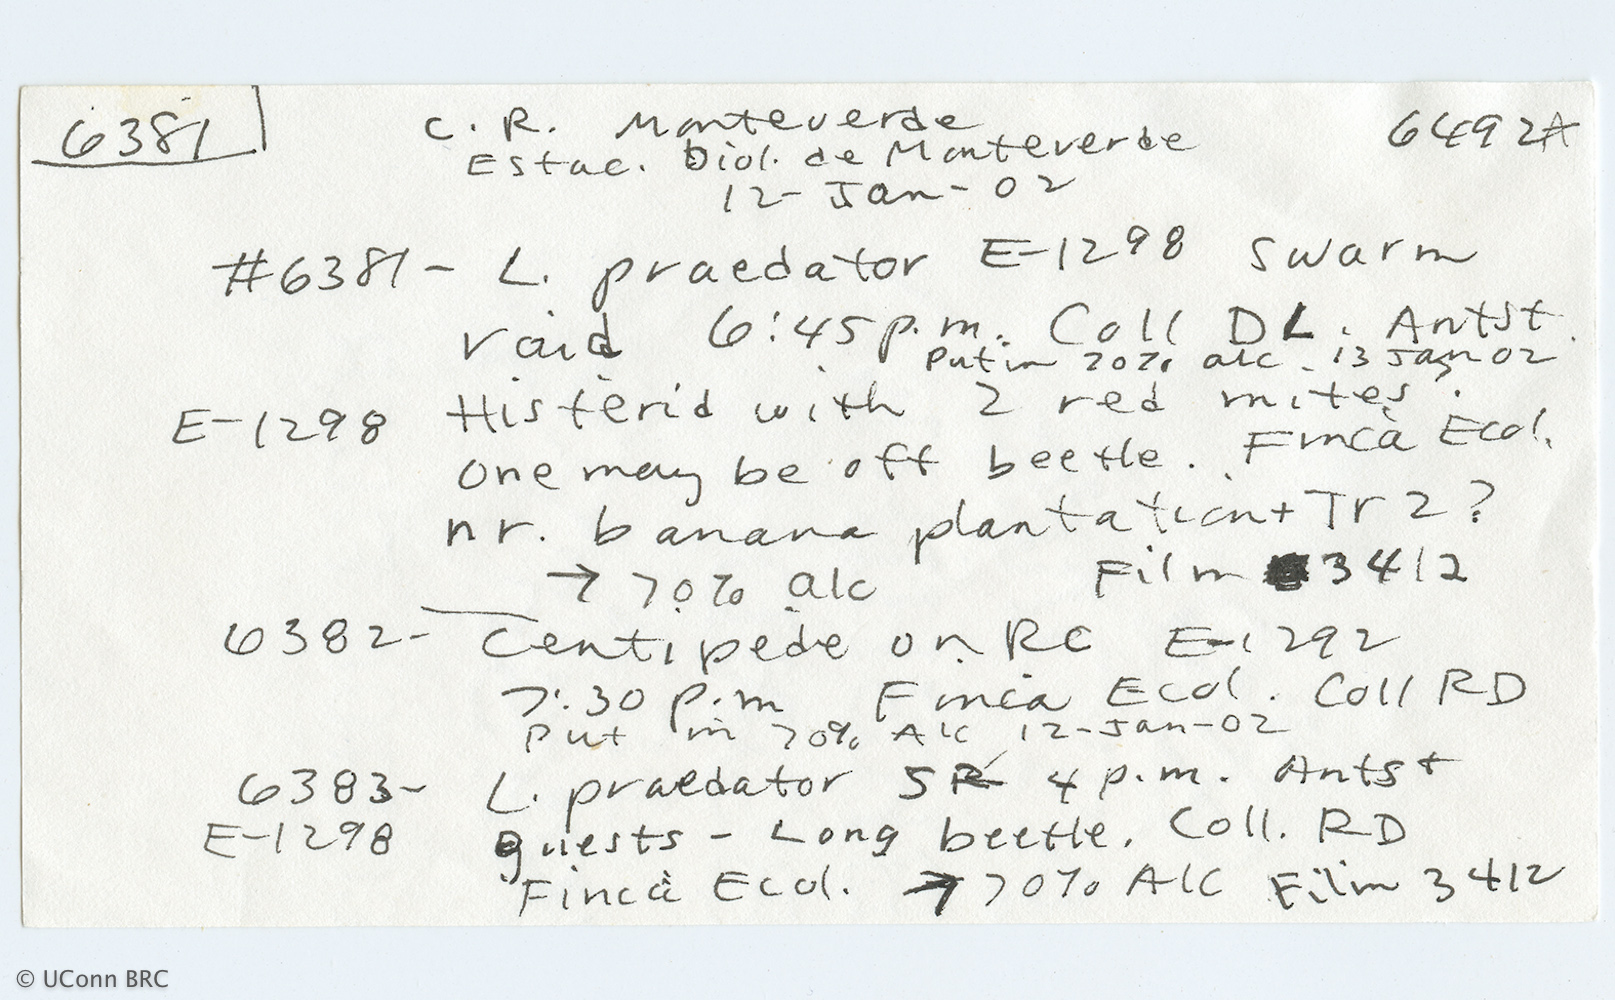 6381
C. R. Monteverde
6492A
Estac. Biol. de Monteverde
12-Jan-02
#6381- L. praedator E-1298 swarm
raid 6:45 p.m. Coll DL. Ants+
Put in 70% alc. 13 Jan 02
E-1298 Histerid with 2 red mites.
one may be off beetle. Finca Ecol.
nr. banana plantation + Tr 2?
→ 70% alc Film 3412
6382- Centipede on RC E-1292
7:30 p.m Finca Ecol. Coll RD
Put in 70% Alc 12-Jan-02
6383- L. praedator SR 4 p.m. Ants+
E-1298 guests - Long beetle. Coll. RD
Finca Ecol. → 70% Alc Film 3412
© UConn BRC